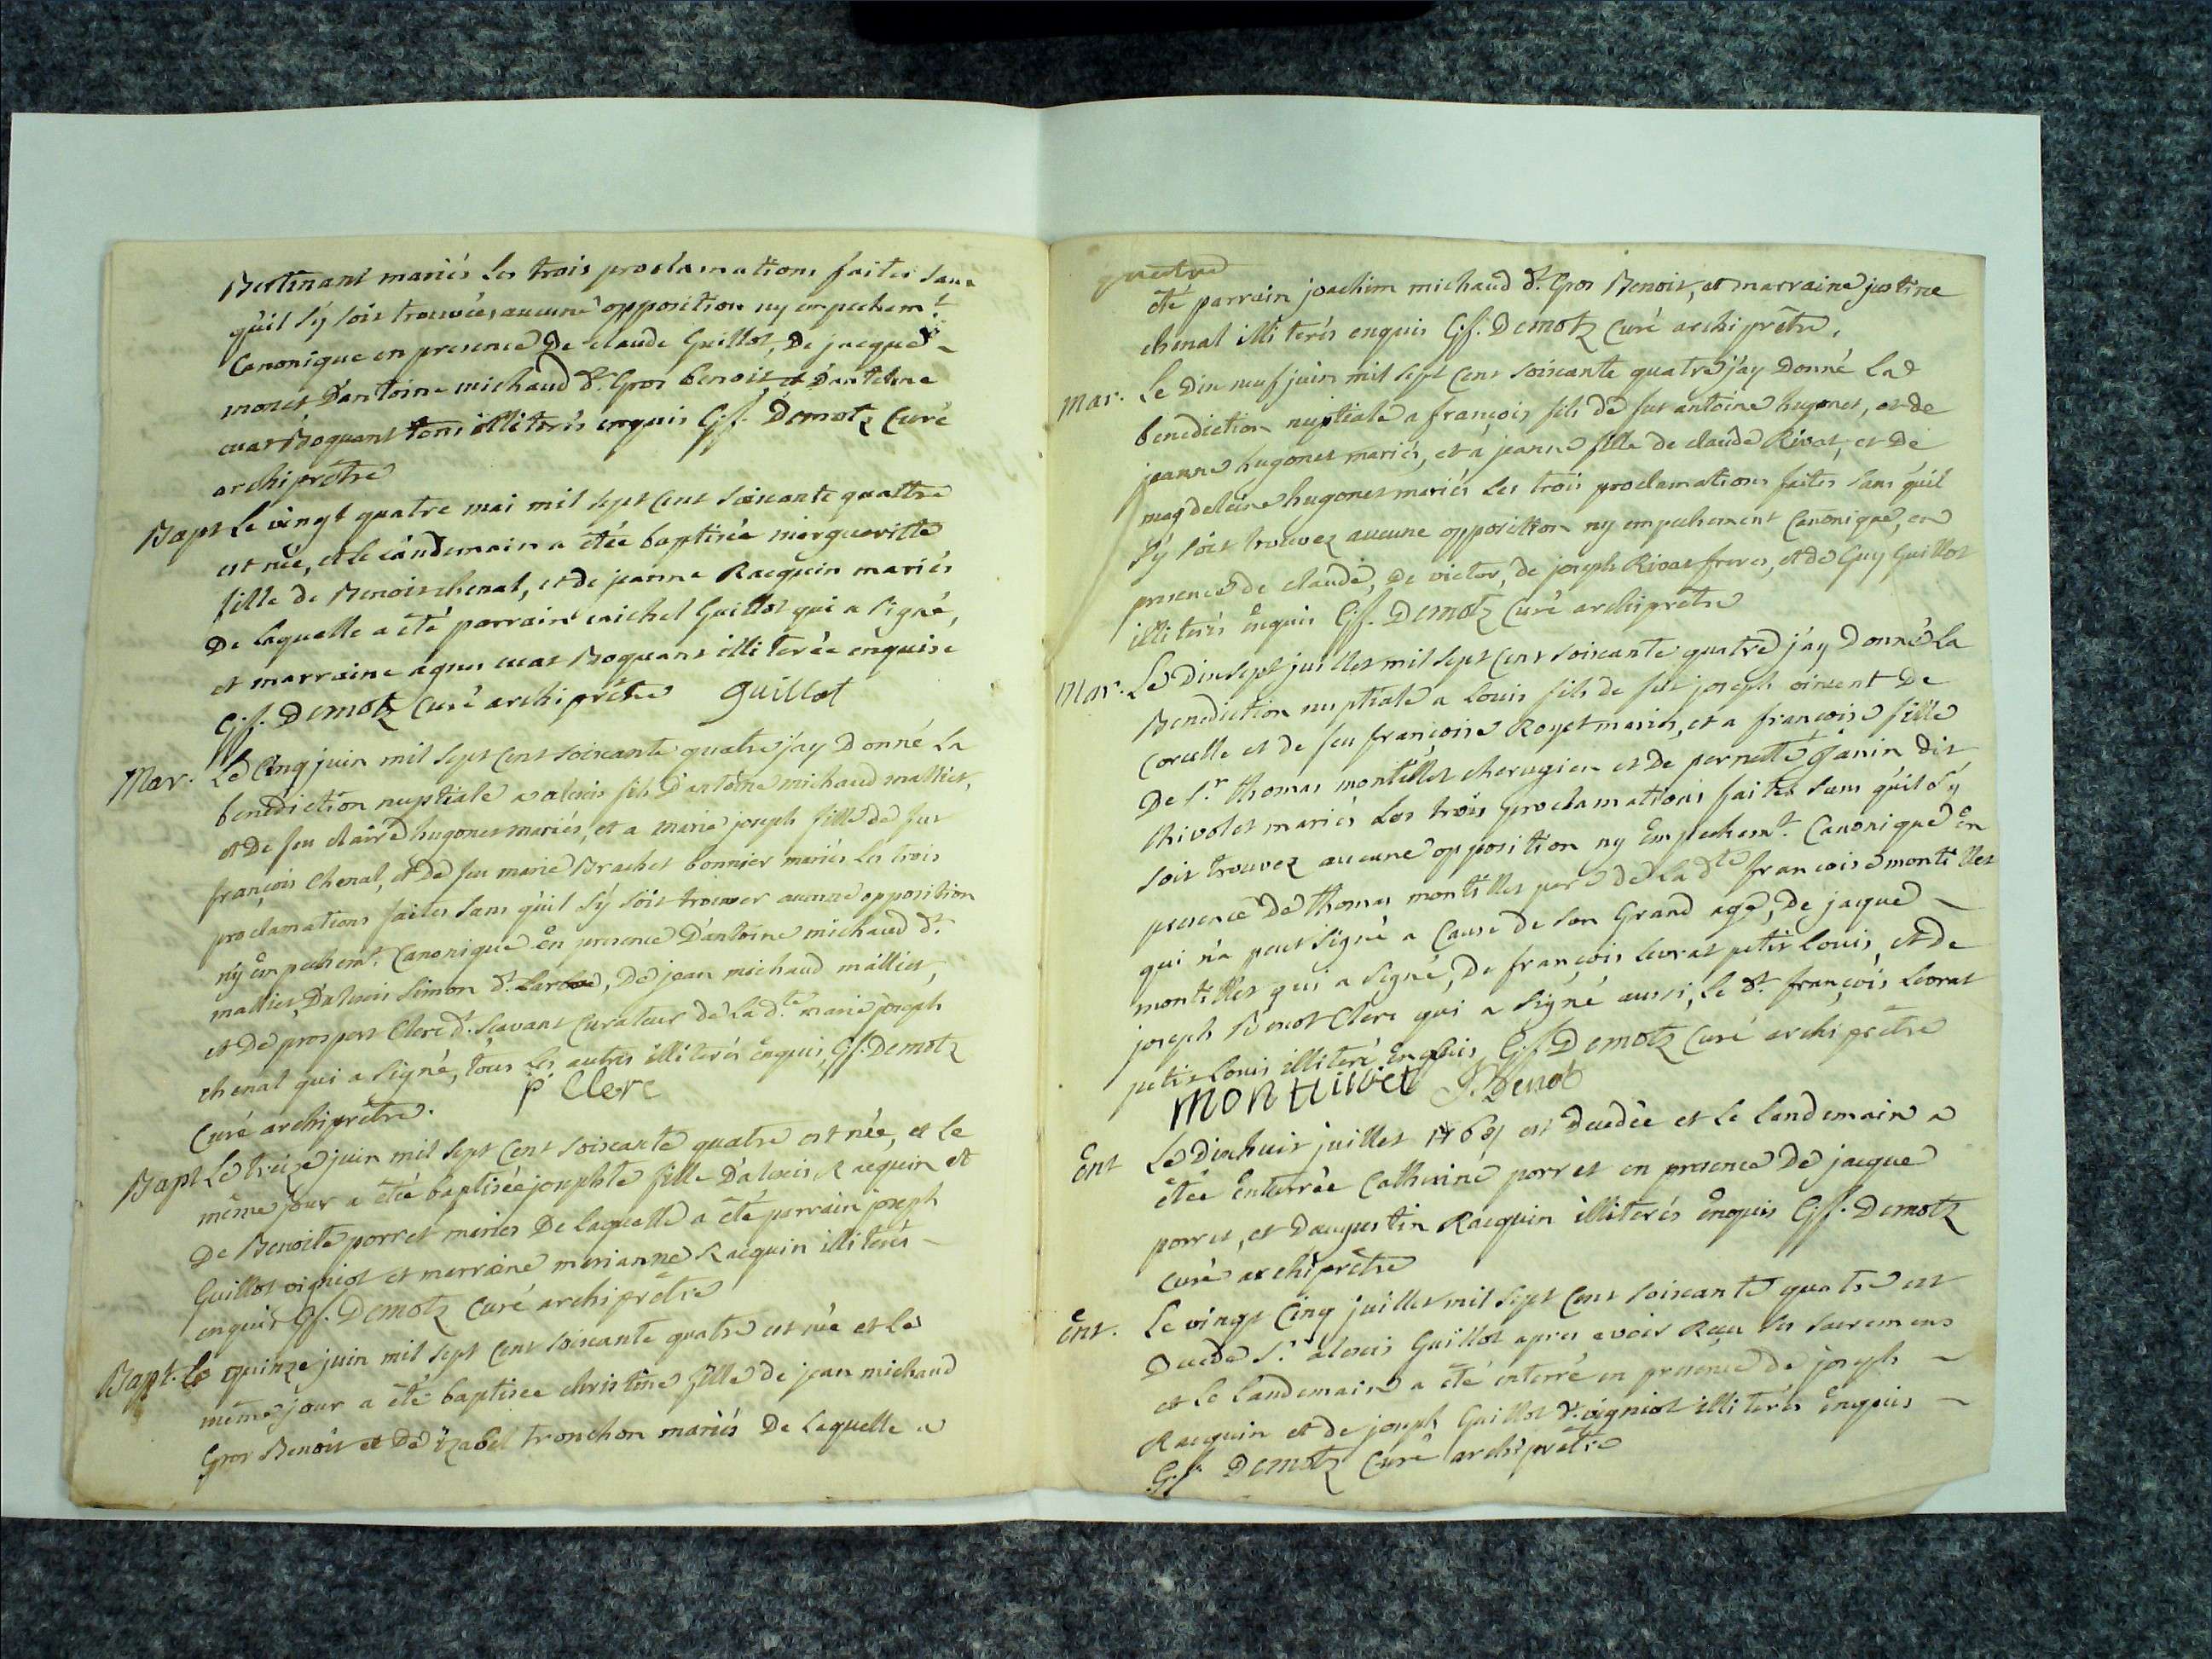 Bertinant mariés les trois proclamations faites sans
qu'il s'y soit trouvées aucune opposition ny empechem.t
Canonique en presence De claude Guillot, De jacque
monet D'antoine michaud d.t Gros benoit et D'antelme
cuat Boquant tous illiterés enquis G.f. Demotz Curé
archiprêtre
Bapt Le vingt quatre mai mil sept cent soixante quattre
est née, et le landemain a étée baptisée margueritte
fille de Benoit chenal, et de jeanne Racquin mariés
De laquelle a été parrain michel Guillot qui a signé,
et marraine agnes cuat Boquant illiterée enquise
G.f. Demotz Curé archiprêtre guillot
Mar. Le Cinq juin mil sept cent soixante quatre j'ay Donné La
benediction nuptiale a alexis fils D'antoine michaud malliet,
et De feu claire hugonet mariés, et a marie joseph fille de fut
françois Chenal, et De feu marie Brachet bonnier mariés les trois
proclamations faites sans qu'il s'y soit trouver aucune opposition
ny empechem.t Canonique en presence D'antoine michaud d.t
malliet, D'alexis Simon d.t, De jean michaud malliet,
et De prospert Clerc d.t Scavant Curateur de La d.te marie joseph
chenal qui a signé, tous les autres illiterés enquis, G.f. Demotz
Curé archiprêtre. p Clerc
Bapt Le treize juin mil sept cent soixante quatre est née, et le
même jour a étée baptisée josephte fille D'alexis Racquin et
De Benoite porret mariés De laquelle a été parrain joseph
Guillot vigniot et marraine marianne Racquin illiterés
enquis G.f. Demotz Curé archiprêtre
Bapt. Le quinze juin mil sept cent soixante quatre est née et le
même jour a été baptisee christine fille de jean michaud
Gros Benoit et De izabel tronchon mariés De laquelle a
été parrain joachim michaud d.t Gros Benoit, et marraine justine
chenal illiterés enquis G.f. Demotz Curé archiprêtre,
Mar. Le Dix neuf juin mil sept cent soixante quatre j'ay Donné La
benediction nuptiale a françois fils de fut antoine hugonet, et de
jeanne hugonet mariés, et a jeanne fille de claude Rivat, et De
magdeleine hugonet mariés Les trois proclamations faites sans qu'il
s'y soit trouvez aucune opposition ny empechement Canonique, en
presence de claude, De victor, de joseph Rivat freres, et de Guy Guillot
illiterés enquis G.f. Demotz Curé archiprêtre
Mar. Le Dix sept juillet mil sept cent soixante quatre j'ay Donné La
Benediction nuptiale a Louis fils de fut joseph vincent De
Corcelle et de feu françoise Royet mariés, et a françoise fille
De S.r thomas montillet cherugien et De pernette Janin dit
Rivolet mariés Les trois proclamations faites sans qu'il s'y
soit trouvez aucune opposition ny Empechem.t Canonique en
presence De thomas montillet pere de La d.te françoise montillet
qui n'a peut signé a Cause de son Grand age, De jacque
montillet qui a signé, De françois Levrat petit Louis, et de
joseph Benot Clerc qui a signé aussi, Le d.t françois Levrat
petit Louis illiteré Enquis G.f. Demotz Curé archiprêtre
J. Benot
Ent Le Dixhuit juillet 1764 est Decedée et le landemain a
étée Enterrée Catherine porret en presence De jacque
porret, et D'augustin Racquin illiterés Enquis G.f. Demotz
Curé archiprêtre
Ent. Le vingt Cinq juillet mil sept cent soixante quatre est
Decedé S.r alexis Guillot apres avoir Reçu les sacremens
et le landemain a été enterré en presence de joseph
Racquin et de joseph Guillot d.t vigniot illiterés Enquis
G.f. Demotz Curé archiprêtre